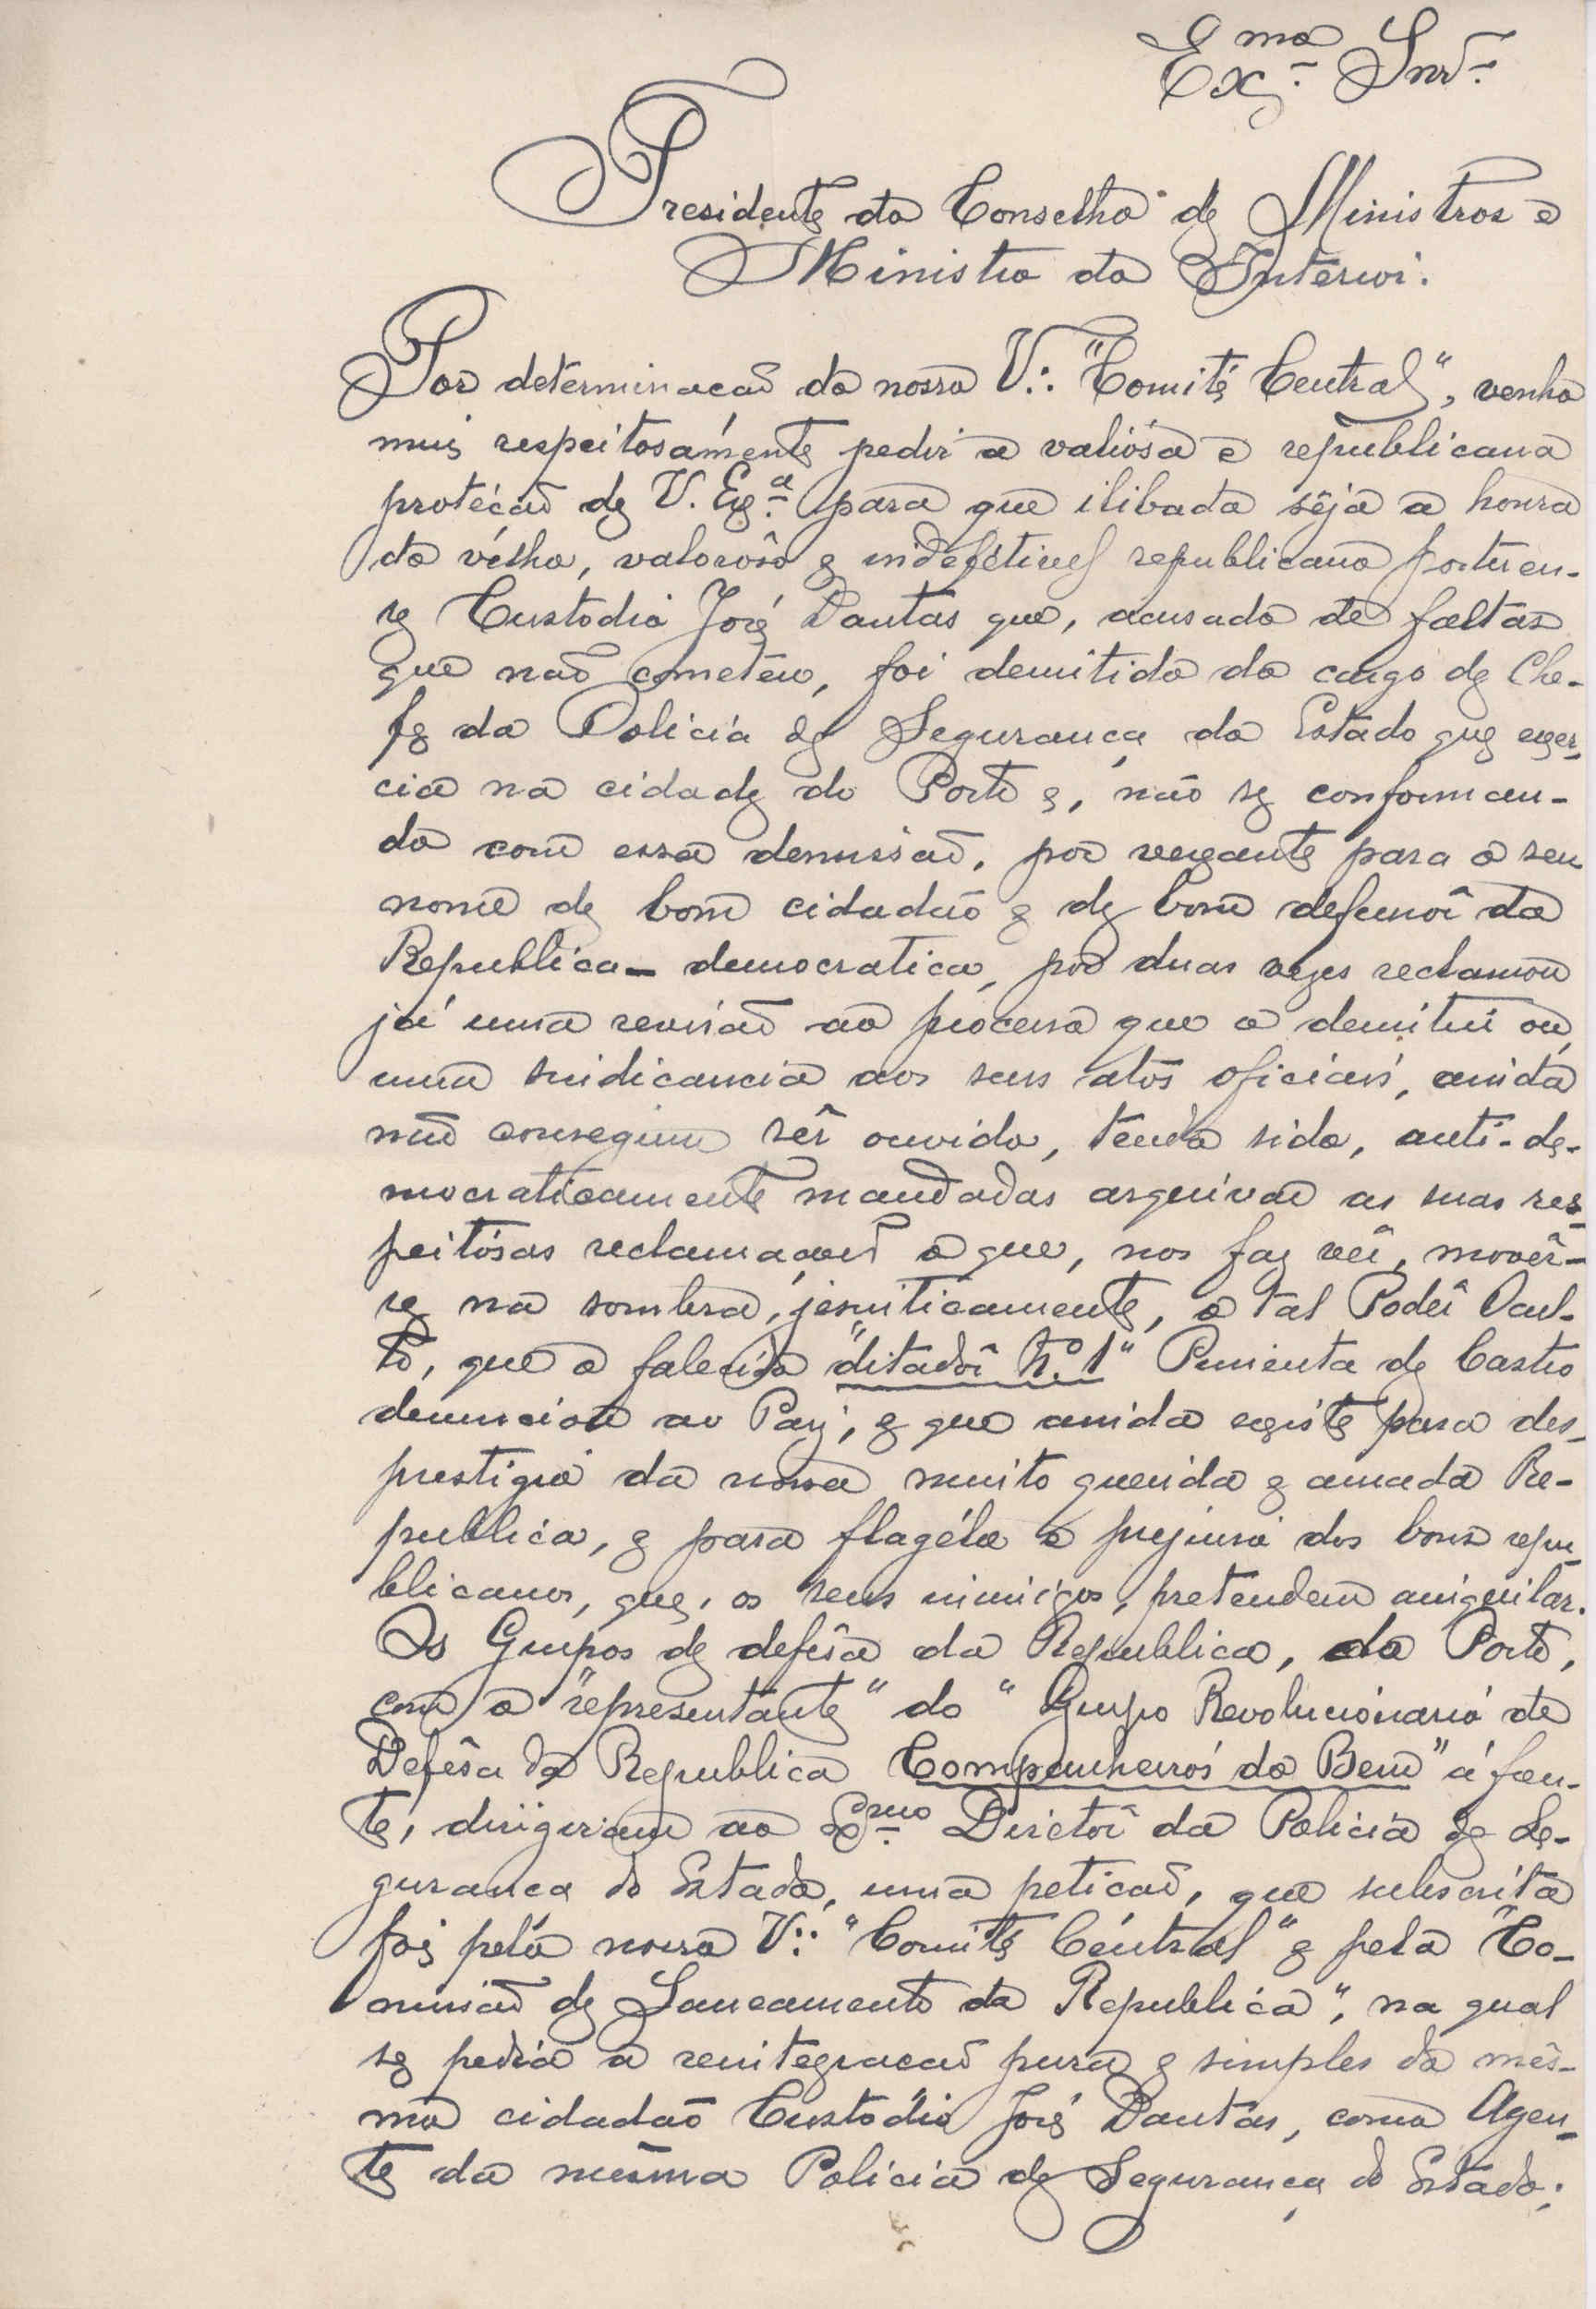 Ex.mo Snr.
Presidente do Conselho de Ministros e
Ministro do Interior.
Por determinação do nosso V∴ "Comité Central", venho
mui respeitosámente pedir a valiósa e republicana
protéção de V. Ex.a para que ilibada sêja a honra
do vélho, valorôso e indefétivel republicano portuen-
se Custodio José Dantas que, acusado de faltas
que não cometeu, foi demitido do cargo de Che-
fe da Policia de Segurança do Estado que exer-
cia na cidade do Porto e, não se conforman-
do com essa demissão, por vexante para o seu
nome de bom cidadão e de bom defensôr da
Republica-democratica, por duas vezes reclamou
já uma revisão ao processo que o demitiu ou
uma sindicancia aos seus átos oficiáis, ainda
não conseguiu sêr ouvido, tendo sido, anti-de-
mocraticamente mandadas arquivar as suas res-
peitósas reclamações o que, nos faz vêr, movêr-
se na sombra, jesuiticamente, o tal Podêr Ocul-
to, que o falecido "ditadôr N.º 1" Pimenta de Castro
denunciou ao Paiz, e que ainda existe para des-
prestigio da nossa muito querida e amada Re-
publica, e para flagélo e prejuiso dos bons repu-
blicanos, que, os seus inimigos, pretendem aniquilar.
Os Grupos de defêsa da Republica, do Porto,
com o "representante" do "Grupo Revolucionario de
Defêsa da Republica Companheirós do Bem" á fren-
te, dirigiram ao Ex.mo Diretôr da Policia de Se-
gurança do Estado, uma petição, que subscrita
foi pelo nosso V∴ "Comité Céntral" e pela "Co-
missão de Saneamento da Republica", na qual
se pedia a reintegração pura e simples do mês-
mo cidadão Custódio José Dantas, como Agen-
te da mesma Policia de Segurança do Estado;